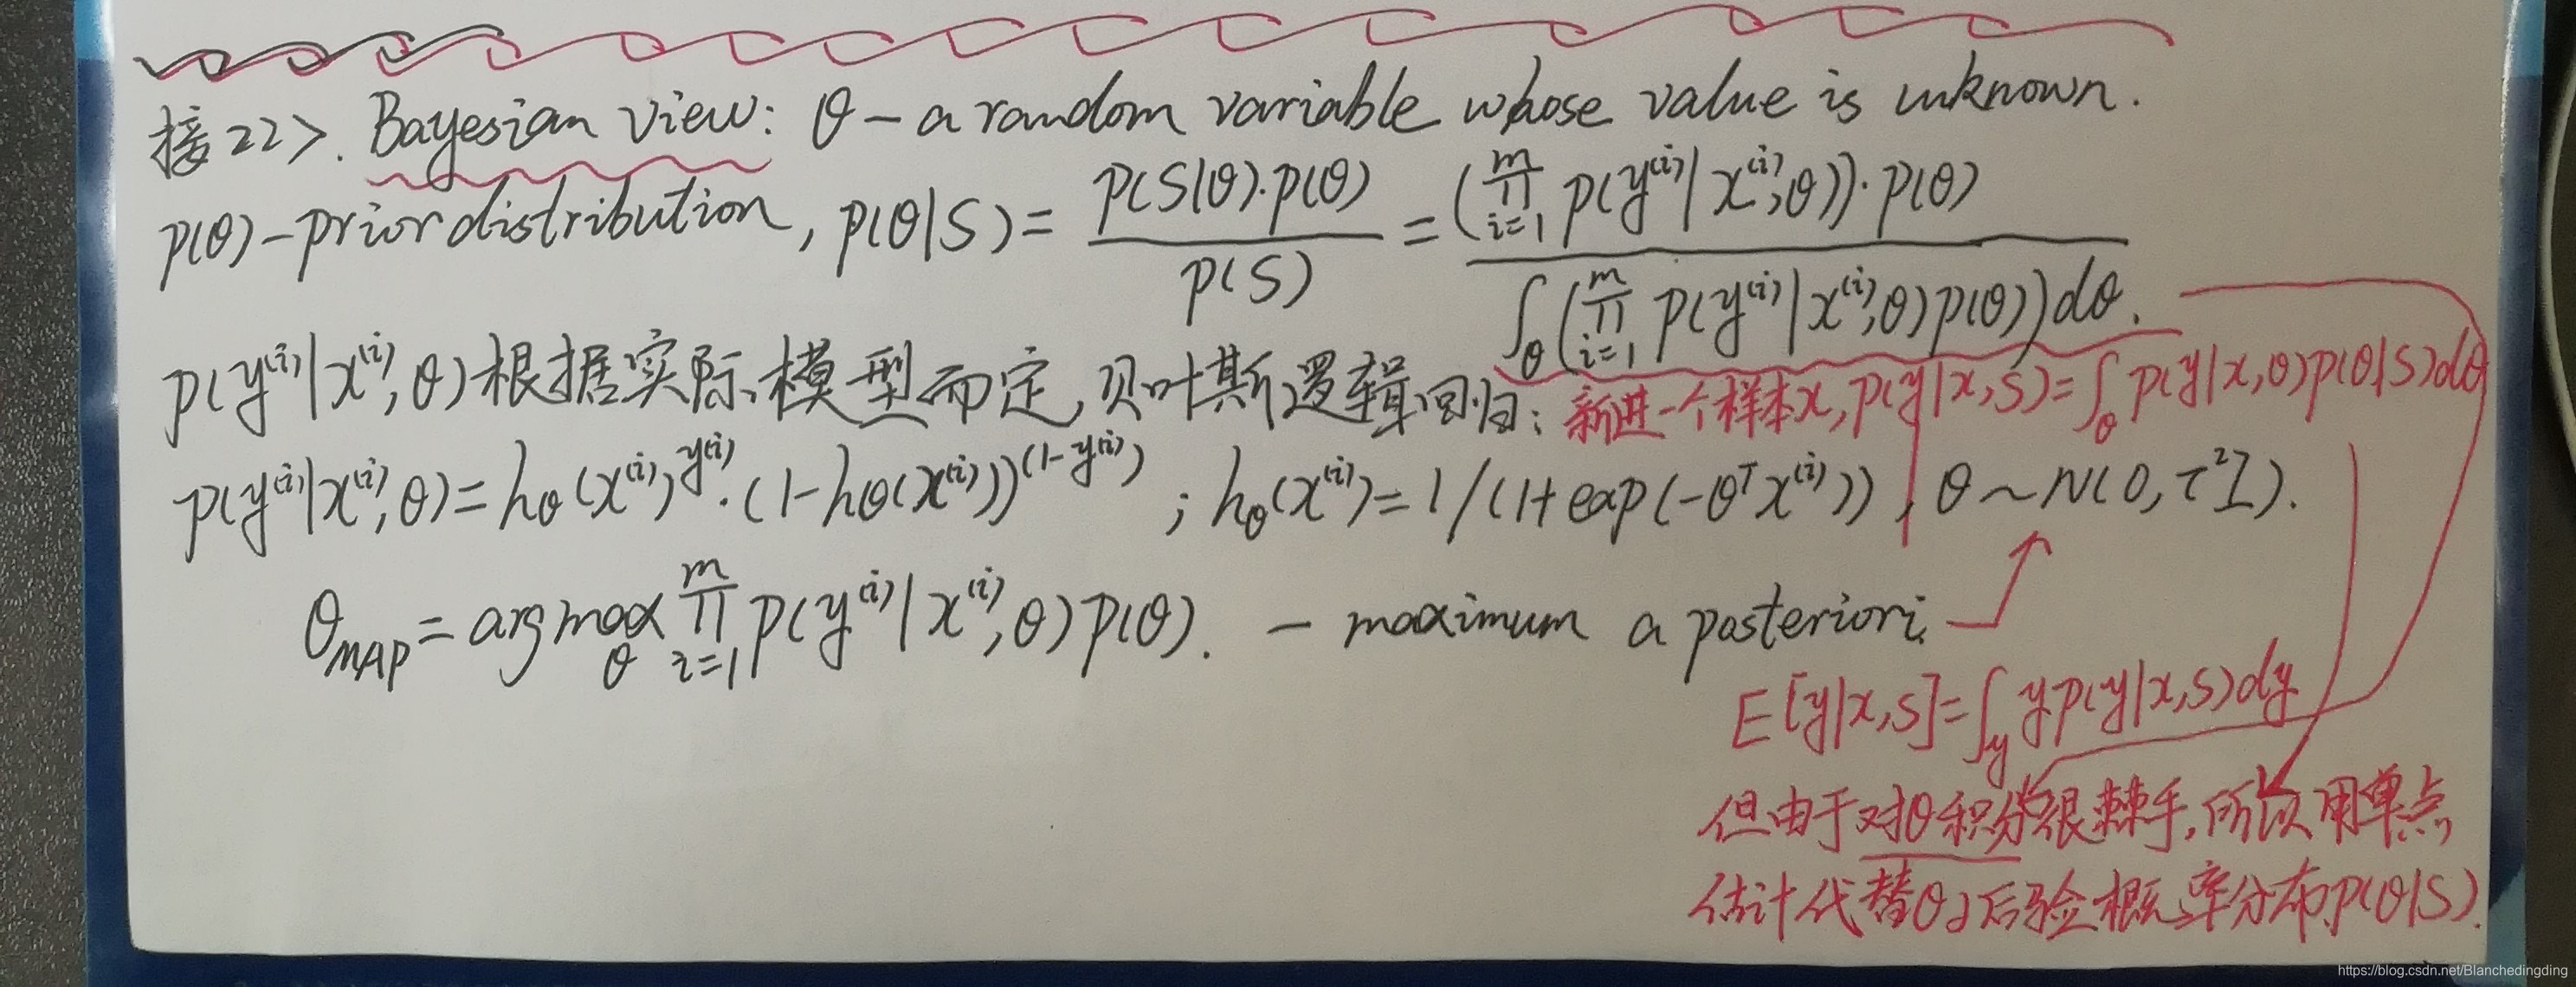 接22>. Bayesian view: θ — a random variable whose value is unknown.
p(θ) — prior distribution, p(θ|S) = \frac{p(S|θ)·p(θ)}{p(S)} = \frac{(\prod_{i=1}^{m} p(y^{(i)}|x^{(i)},θ))·p(θ)}{\int_θ (\prod_{i=1}^{m} p(y^{(i)}|x^{(i)},θ)p(θ))dθ}.
p(y^{(i)}|x^{(i)},θ)根据实际模型而定,贝叶斯逻辑回归:
新进一个样本x, p(y|x,S) = \int_θ p(y|x,θ)p(θ|S)dθ
p(y^{(i)}|x^{(i)},θ) = h_θ(x^{(i)})^{y^{(i)}}·(1-h_θ(x^{(i)}))^{(1-y^{(i)})} ; h_θ(x^{(i)}) = 1/(1+exp(-θ^T x^{(i)})), θ ~ N(0, τ^2 I).
θ_{MAP} = arg max_θ \prod_{i=1}^{m} p(y^{(i)}|x^{(i)},θ)p(θ). — maximum a posteriori.
E[y|x,S] = \int_y y p(y|x,S)dy
但由于对θ积分很棘手,所以用单点
估计代替θ的后验概率分布p(θ|S).
https://blog.csdn.net/Blanchedingding